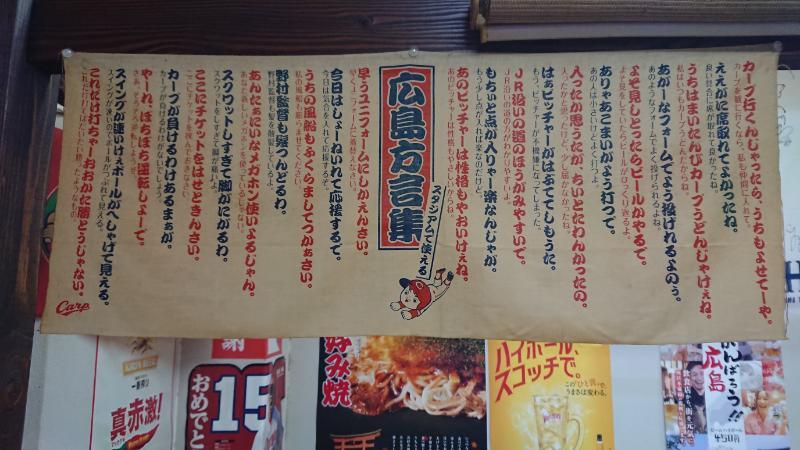 カープ行くんじゃったら、うちもよせてーや。
カープを観に行くなら、私も仲間に入れて。
ええがに席取れてよかったね。
良い具合に席が取れて良かったね。
うちはまいたんびカープうどんじゃけぇね。
私はいつもカープうどんだからね。
あがーなフォームでよう投げれるよのぅ。
あのようなフォームでよく投げられるよね。
よそ見しとったらビールがかやるで。
よそ見をしていたらビールがひっくり返るよ。
ありゃあこまいがよう打つで。
あの人は小さいけどよく打つよ。
入ったか思うたが、ちいとたわんかったの。
入ったかと思ったけど、少し届かなかったね。
はぁピッチャーがはぶててしもうた。
もう、ピッチャーが不機嫌になってしまった。
JR沿いの道のほうがみやすいで。
JR沿いの道のほうがわかりやすいよ。
もちいと点が入りゃー楽なんじゃが。
もう少し点が入れば楽なのだけど。
あのピッチャーは性格もやおいけぇね。
あのピッチャーは性格もやさしいからね。
スタジアムで使える
広島方言集
早うユニフォームにしかえんさい。
早くユニフォームに着替えなさい。
今日はしょーねいれて応援するで。
今日は気合を入れて応援するぞ。
うちの風船もふくらましてつかぁさい。
私の風船も膨らませてください。
野村監督も髪つんどるわ。
野村監督も髪を散髪しているよ。
あんたぁないなメガホン使いよるじゃん。
あなた新しいメガホンを使っているじゃない。
スクワットしすぎて脚がにがるわ。
スクワットをしすぎて脚が痛いよ。
ここにチケットをはせときんさい。
ここにチケットを挟んでおきなさい。
カープが負けるわけあるまぁが。
カープが負けるわけがないでしょう。
やーれ、ぼちぼち逆転しょーで。
さあ、そろそろ逆転しようぜ。
スイングが速いけぇボールがへしゃげて見える。
スイングが速いのでボールがつぶれて見える。
これだけ打ちゃーおおかた勝とうじゃない。
Carp
真赤激!
謝
おめでと
15
好み焼
ハイボール、
スコッチで。
うまさは変わる。
がんばろう!!
広島
450円